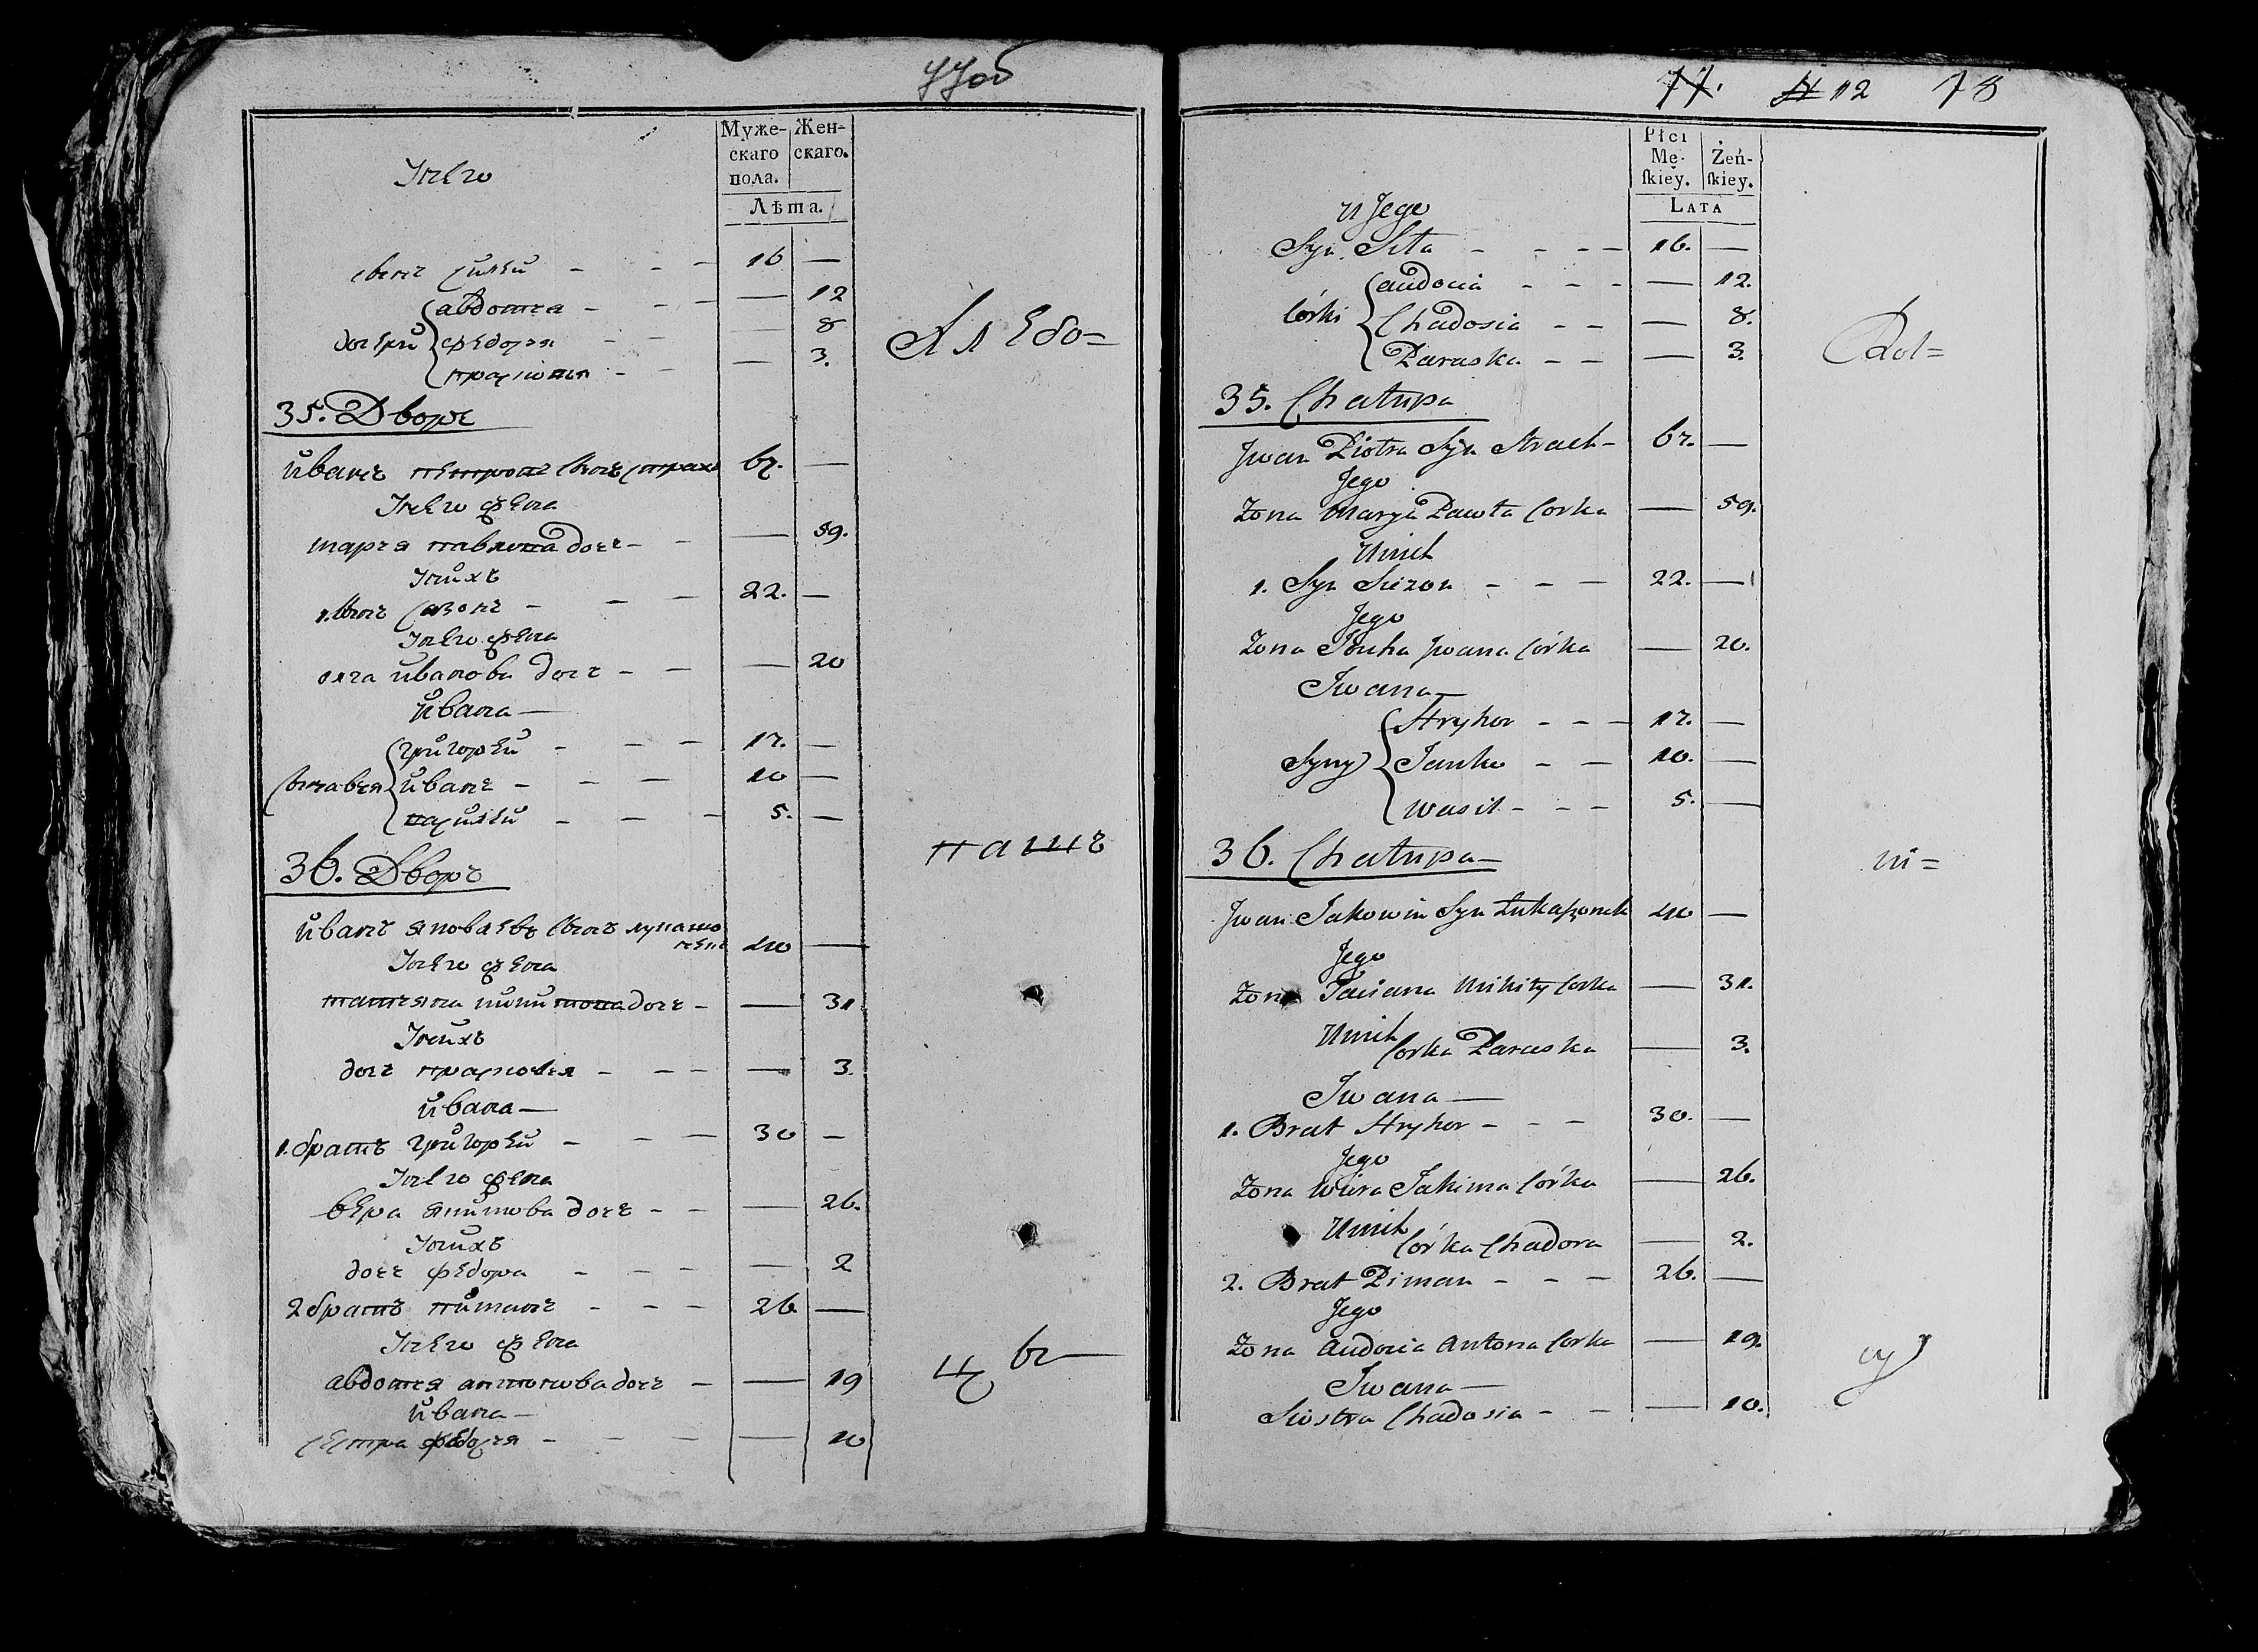 77об
Муже-
скаго
пола.
Жен-
скаго.
Лѣта.
У него
сынъ силей - - - 16 —
дочери
авдотья - - - — 12
федосья - - — 8
прасковья - - — 3.
Хлебо=
35. Дворъ
иванъ петровъ сынъ страхъ 67. —
У него жена
марья павлова дочь - - — 59.
У нихъ
1. сынъ сазонъ - - - 22. —
У него жена
олга иванова дочь - - — 20
ивана —
сыновья
григорей - - - 17. —
иванъ - - - 10 —
василей - - - 5. —
пашъ
36. Дворъ
иванъ яковлевъ сынъ лукашо
некъ 40 —
У него жена
татьяна никитова дочь - — 31
У нихъ
дочь прасковья - - - — 3.
ивана —
1. братъ григорей - - - 30 —
У него жена
вера якимова дочь - - — 26.
У нихъ
дочь федора - - - — 2
2 братъ пиманъ - - - 26 —
У него жена
авдотья антонова дочь - — 19
цы —
ивана —
сестра федосья - - - — 10
77. 12 78
Płci
Mę-
ſkiey.
Żeń-
ſkiey.
LATA
U Jego
Syn Sila - - - - 16. —
Córki
Audocia - - - — 12.
Chadosia - - — 8.
Paraska - - — 3.
Rol=
35. Chatupa
Jwan Piotra Syn Strach - 67. —
Jego
Zona Marya Pawła Corka — 59.
U nich
1. Syn Sazon - - - 22. —
Jego
Zona Jwana Córka — 20.
Jwana —
Syny
Hryhor - - - 17. —
Janko - - 10. —
Wasil - - - 5. —
36. Chatupa —
ni=
Jwan Jakowin Syn Łukaszonek 40 —
Jego
Zona Taciana Mikity Corka — 31.
U nich
Corka Paraska — 3.
Jwana —
1. Brat Hryhor - - - 30. —
Jego
Zona Wiera Jakima Córka — 26.
U nich
Córka Chadora — 2.
2. Brat Piman - - - 26. —
Jego
Zona Audocia Antona Corka — 19.
cy
Jwana —
Siostra Chadosia - - — 10.